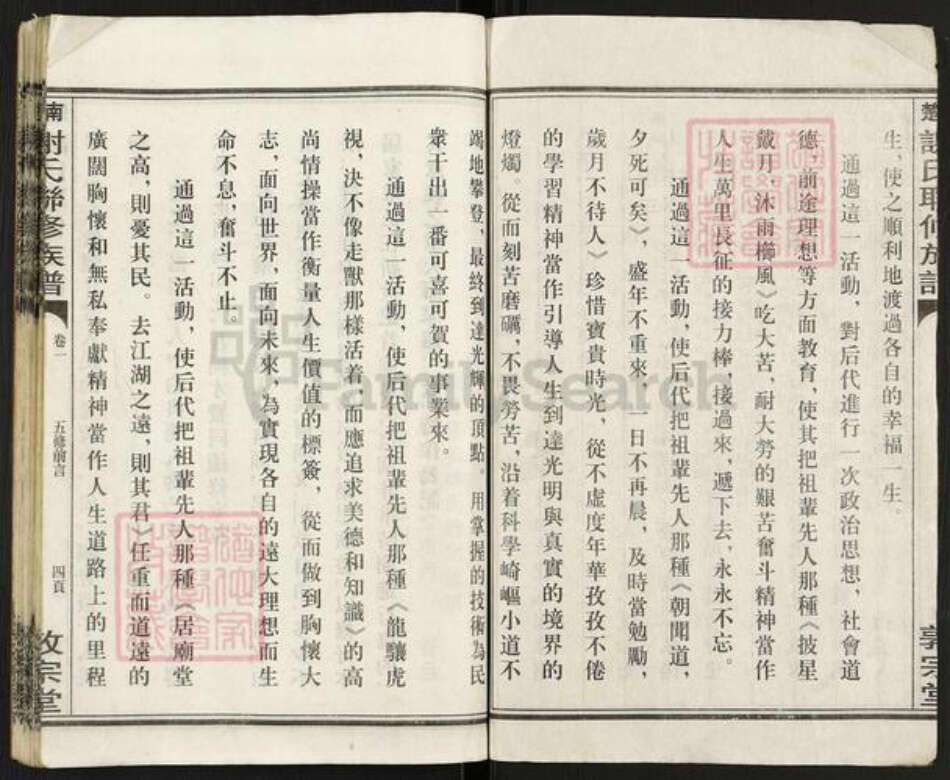 生,使之順利地渡過各自的幸福一生。
通過這一活動,對后代進行一次政治思想,社會道
德,前途理想等方面教育,使其把祖輩先人那種《披星
戴月,沐雨櫛風》吃大苦,耐大勞的艱苦奮斗精神當作
人生萬里長征的接力棒,接過來,遞下去,永永不忘。
通過這一活動,使后代把祖輩先人那種《朝聞道,
夕死可矣》,盛年不重來,一日不再晨,及時當勉勵,
歲月不待人》珍惜寶貴時光,從不虛度年華孜孜不倦
的學習精神當作引導人生到達光明與真實的境界的
燈燭。從而刻苦磨礪,不畏勞苦,沿着科學崎嶇小道不
竭地攀登,最終到達光輝的頂點。用掌握的技術為民
衆干出一番可喜可賀的事業來。
通過這一活動,使后代把祖輩先人那種《龍驤虎
視,決不像走獸那樣活着,而應追求美德和知識》的高
尚情操當作衡量人生價值的標簽,從而做到胸懷大
志,面向世界,面向未來,為實現各自的遠大理想而生
命不息,奮斗不止。
通過這一活動,使后代把祖輩先人那種《居廟堂
之高,則憂其民。去江湖之遠,則其君》任重而道遠的
廣闊胸懷和無私奉獻精神當作人生道路上的里程
南 謝氏聯修族譜
卷一
五修前言
四頁
宗堂
FamilySearch